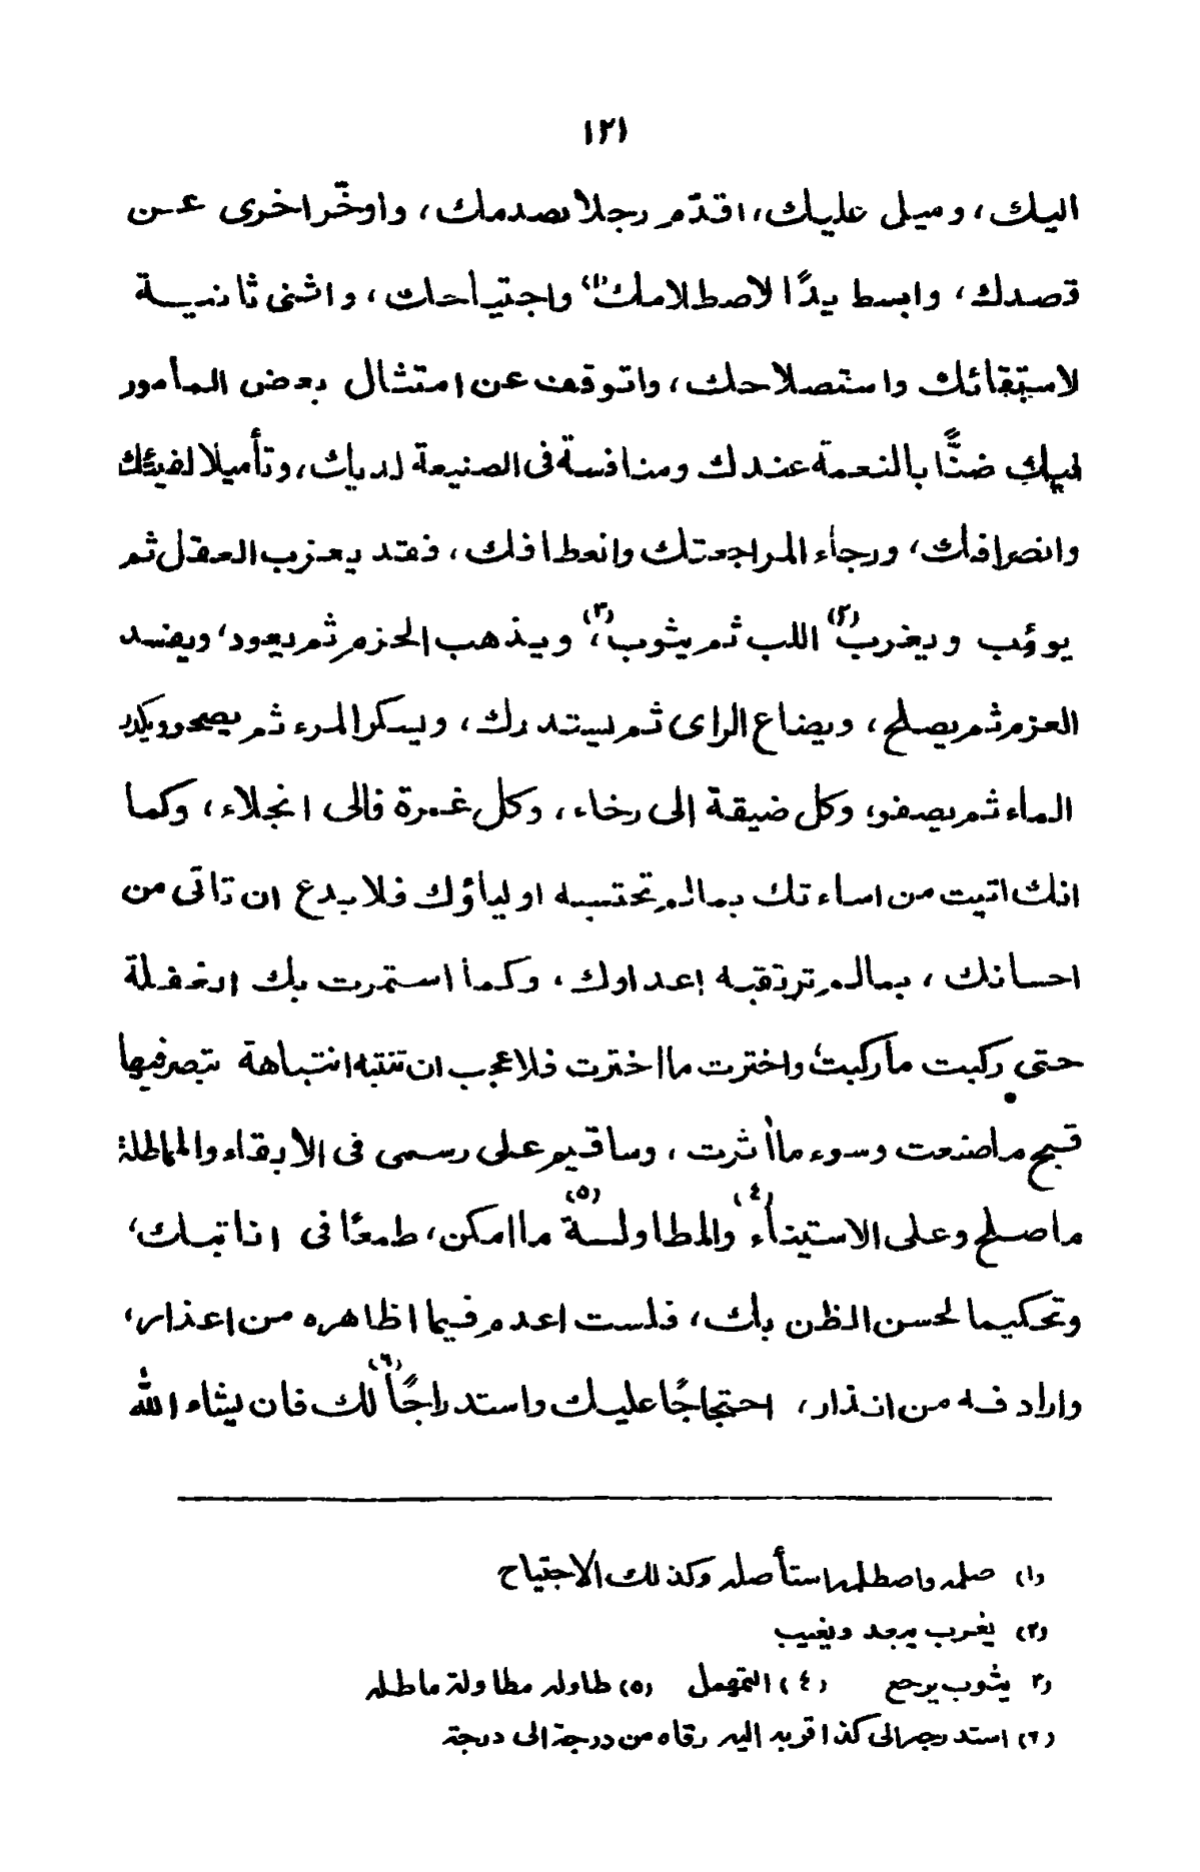 ١٢١
اليك، وميل عليك، اقدّم رجلا لصدمك، واوخّر اخرى عن
قصدك، وابسط يدًا لاصطلامك(١) واجتياحك، واثنى ثانية
لاستبقائك واستصلاحك، واتوقف عن امتثال بعض المأمور
فيك ضنًّا بالنعمة عندك ومنافسة فى الصنيعة لديك، وتأميلا لفيئك
وانصرافك، ورجاء لمراجعتك وانعطافك، فقد يعزب العقل ثم
يوئب ويغرب(٢) اللب ثم يثوب(٣)، ويذهب الحزم ثم يعود، ويفسد
العزم ثم يصلح، ويضاع الراى ثم يستدرك، ويسكر المرء ثم يصحو ويكدر
الماء ثم يصفو، وكل ضيقة الى رخاء، وكل غمرة فالى انجلاء، وكما
انك اتيت من اساءتك بمالم تحتسبه اولياؤك فلا بدع ان تاتى من
احسانك، بمالم ترتقبه اعداوك، وكما استمرت بك الغفلة
حتى ركبت ما ركبت واخترت ما اخترت فلا عجب ان تنتبه انتباهة تبصر فيها
قبح ما صنعت وسوء ما أثرت، وساقيم على رسمى فى الابقاء والمماطلة
ما صلح وعلى الاستيناء(٤) والمطاولة(٥) ما امكن، طمعًا فى انابتك،
وتحكيما لحسن الظن بك، فلست اعدم فيما اظاهره من اعذار،
وارادفه من انذار، احتجاجًا عليك واستدراجًا(٦) لك فان يشاء الله
(١) صلمه واصطلمه استأصله وكذلك الاجتياح
(٢) يغرب يبعد ويغيب
(٣ يثوب يرجع (٤) التمهل (٥) طاوله مطاولة ماطله
(٦) استدرجه الى كذا قربه اليه رقاه من درجة الى درجة